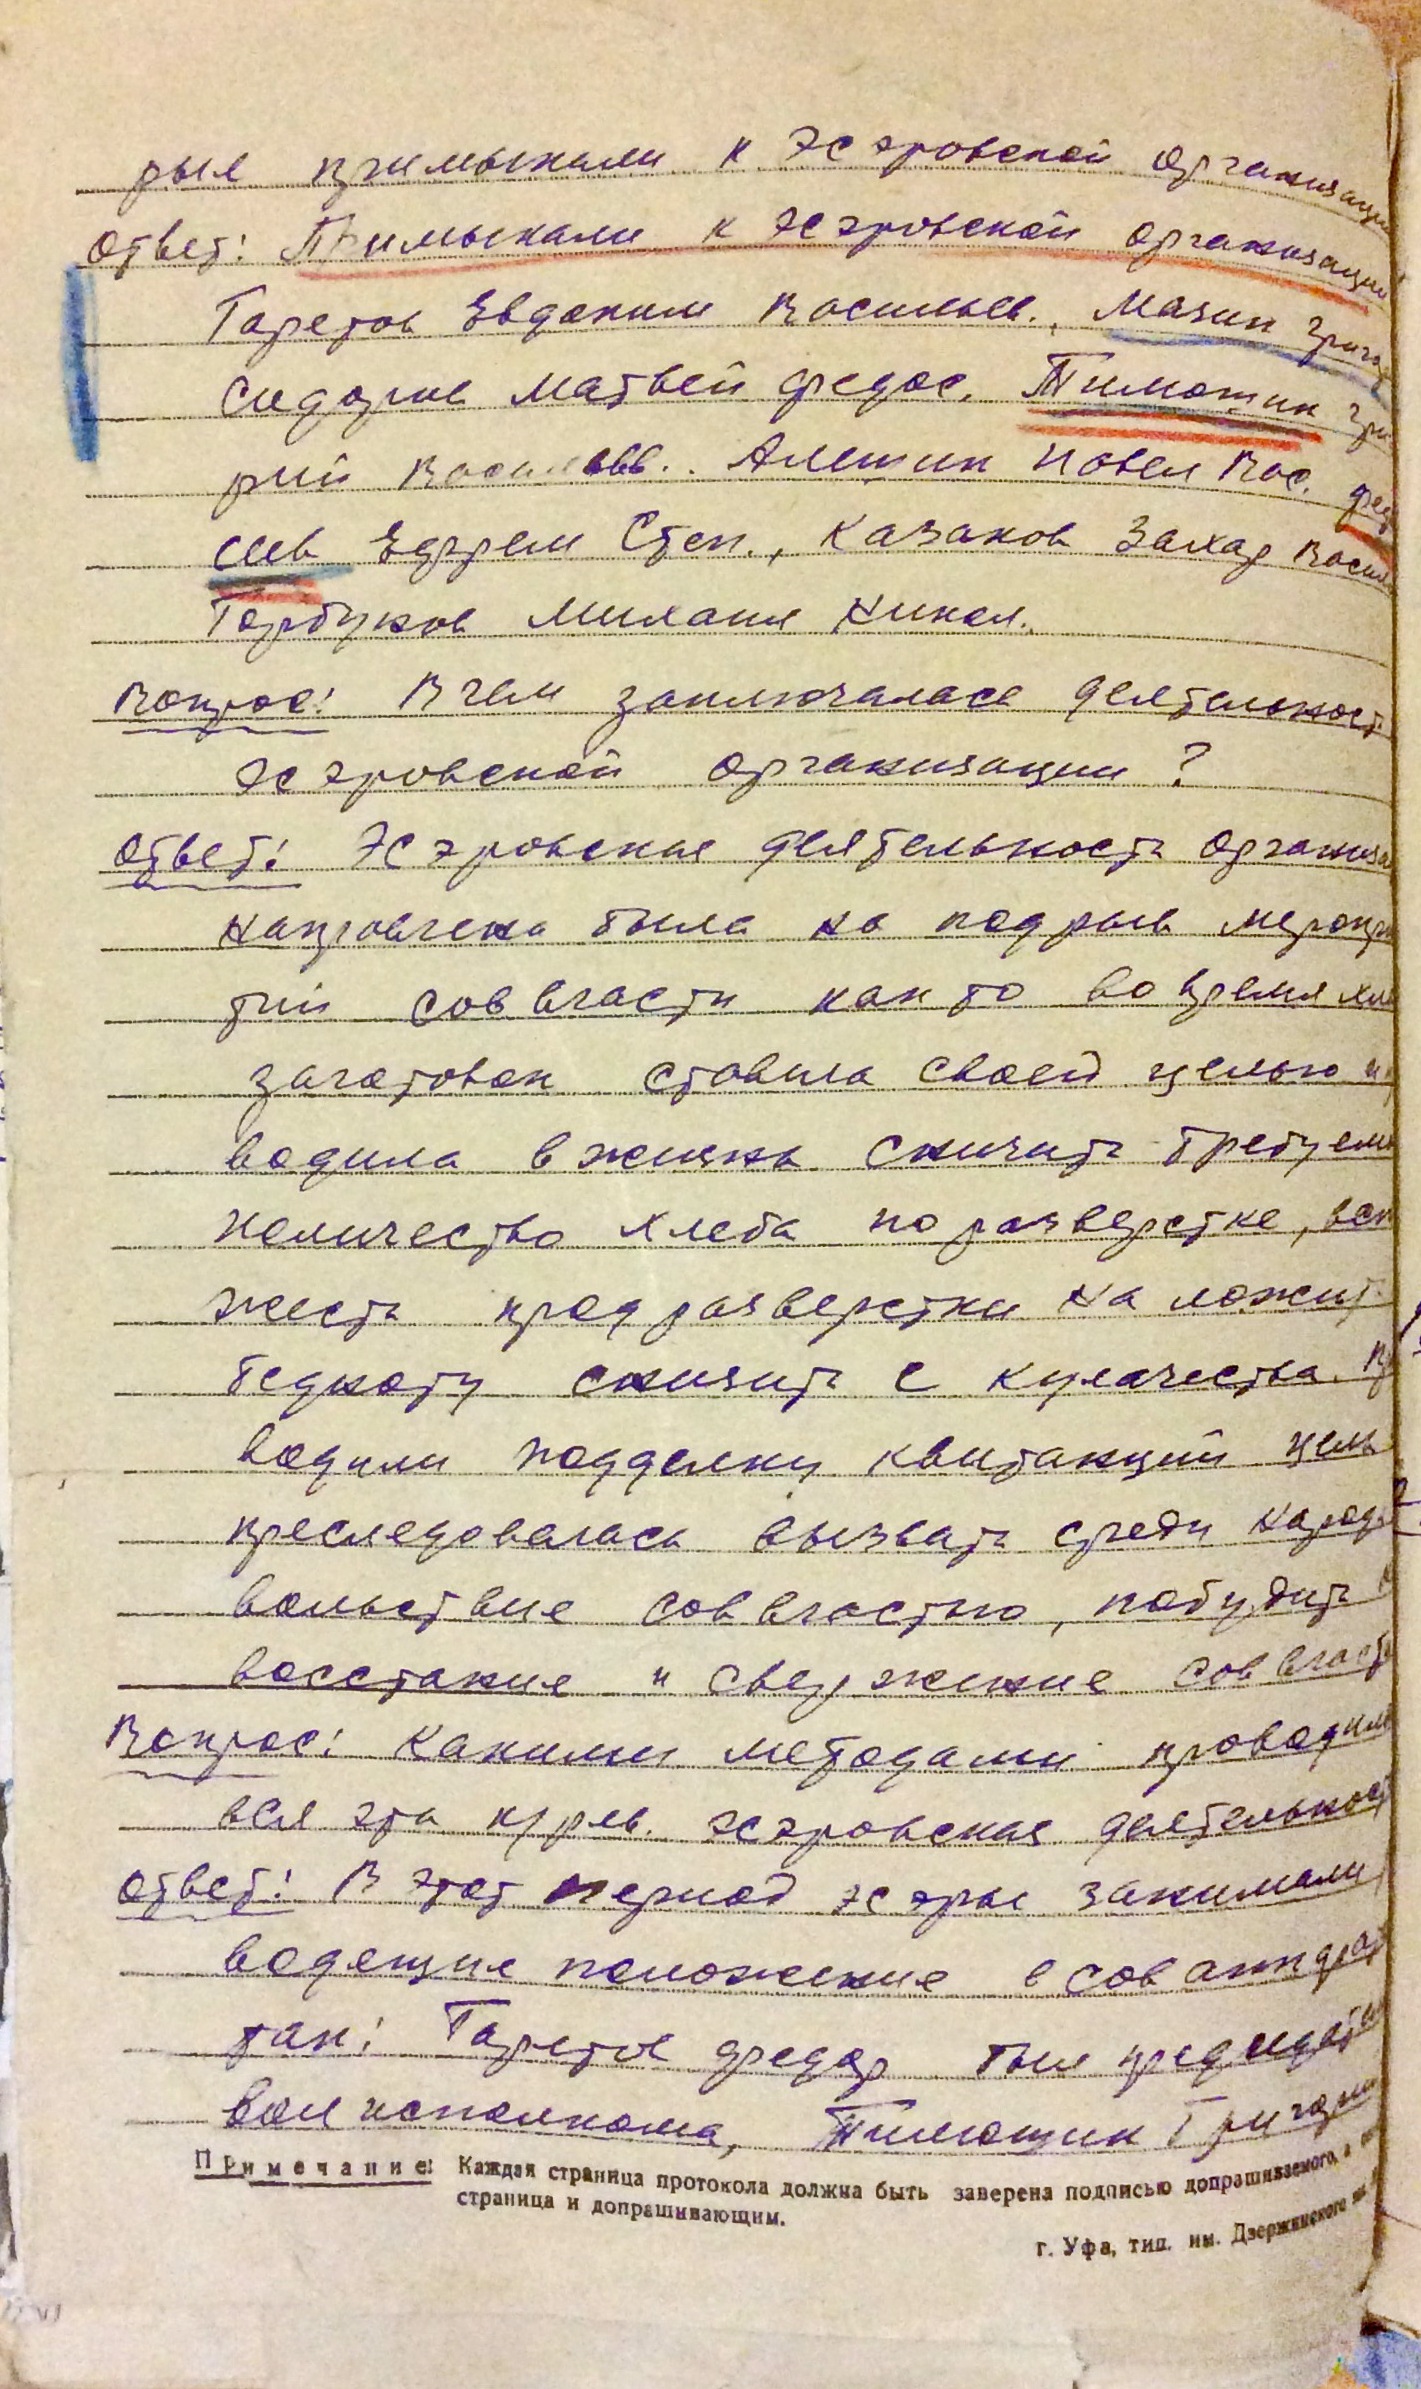 рые примыкали к эсэровской организации
Ответ: Примыкали к эсэровской организации
Таретов Евдоким Васильев., Мазин Григо
Сидоров Матвей Федос. Тимошин Гри
рий Васильев.. Алешин Павел Вас. Фед
сеев Ефрем Степ., Казаков Захар Васил
Горбунов Михаил Никол.
Вопрос: В чем заключалась деятельность
эсэровской организации?
Ответ: Эсэровская деятельность организа
направлена была на подрыв меропри
тий соввласти как то во время хле
заготовок ставила своей целью и
водила в жизнь снизить требуемо
количество хлеба по разверстке, всю
жесть продразверстки на ложить
бедноту снизить с кулачества. Пр
водили подделку квитанций цель
преследовалась вызвать среди народа
вольствие соввластью, побудить
восстание и свержение соввласти
Вопрос: Какими методами проводила
вся эта к/рев. эсэровская деятельность
Ответ: В этот период эсэры занимали
водящие положение в соваппарат
так: Таретов Федор был председател
волисполкома, Тимошин Григори
Примечание: Каждая страница протокола должна быть заверена подписью допрашиваемого, а
страница и допрашивающим.
г. Уфа, тип. им. Дзержинского